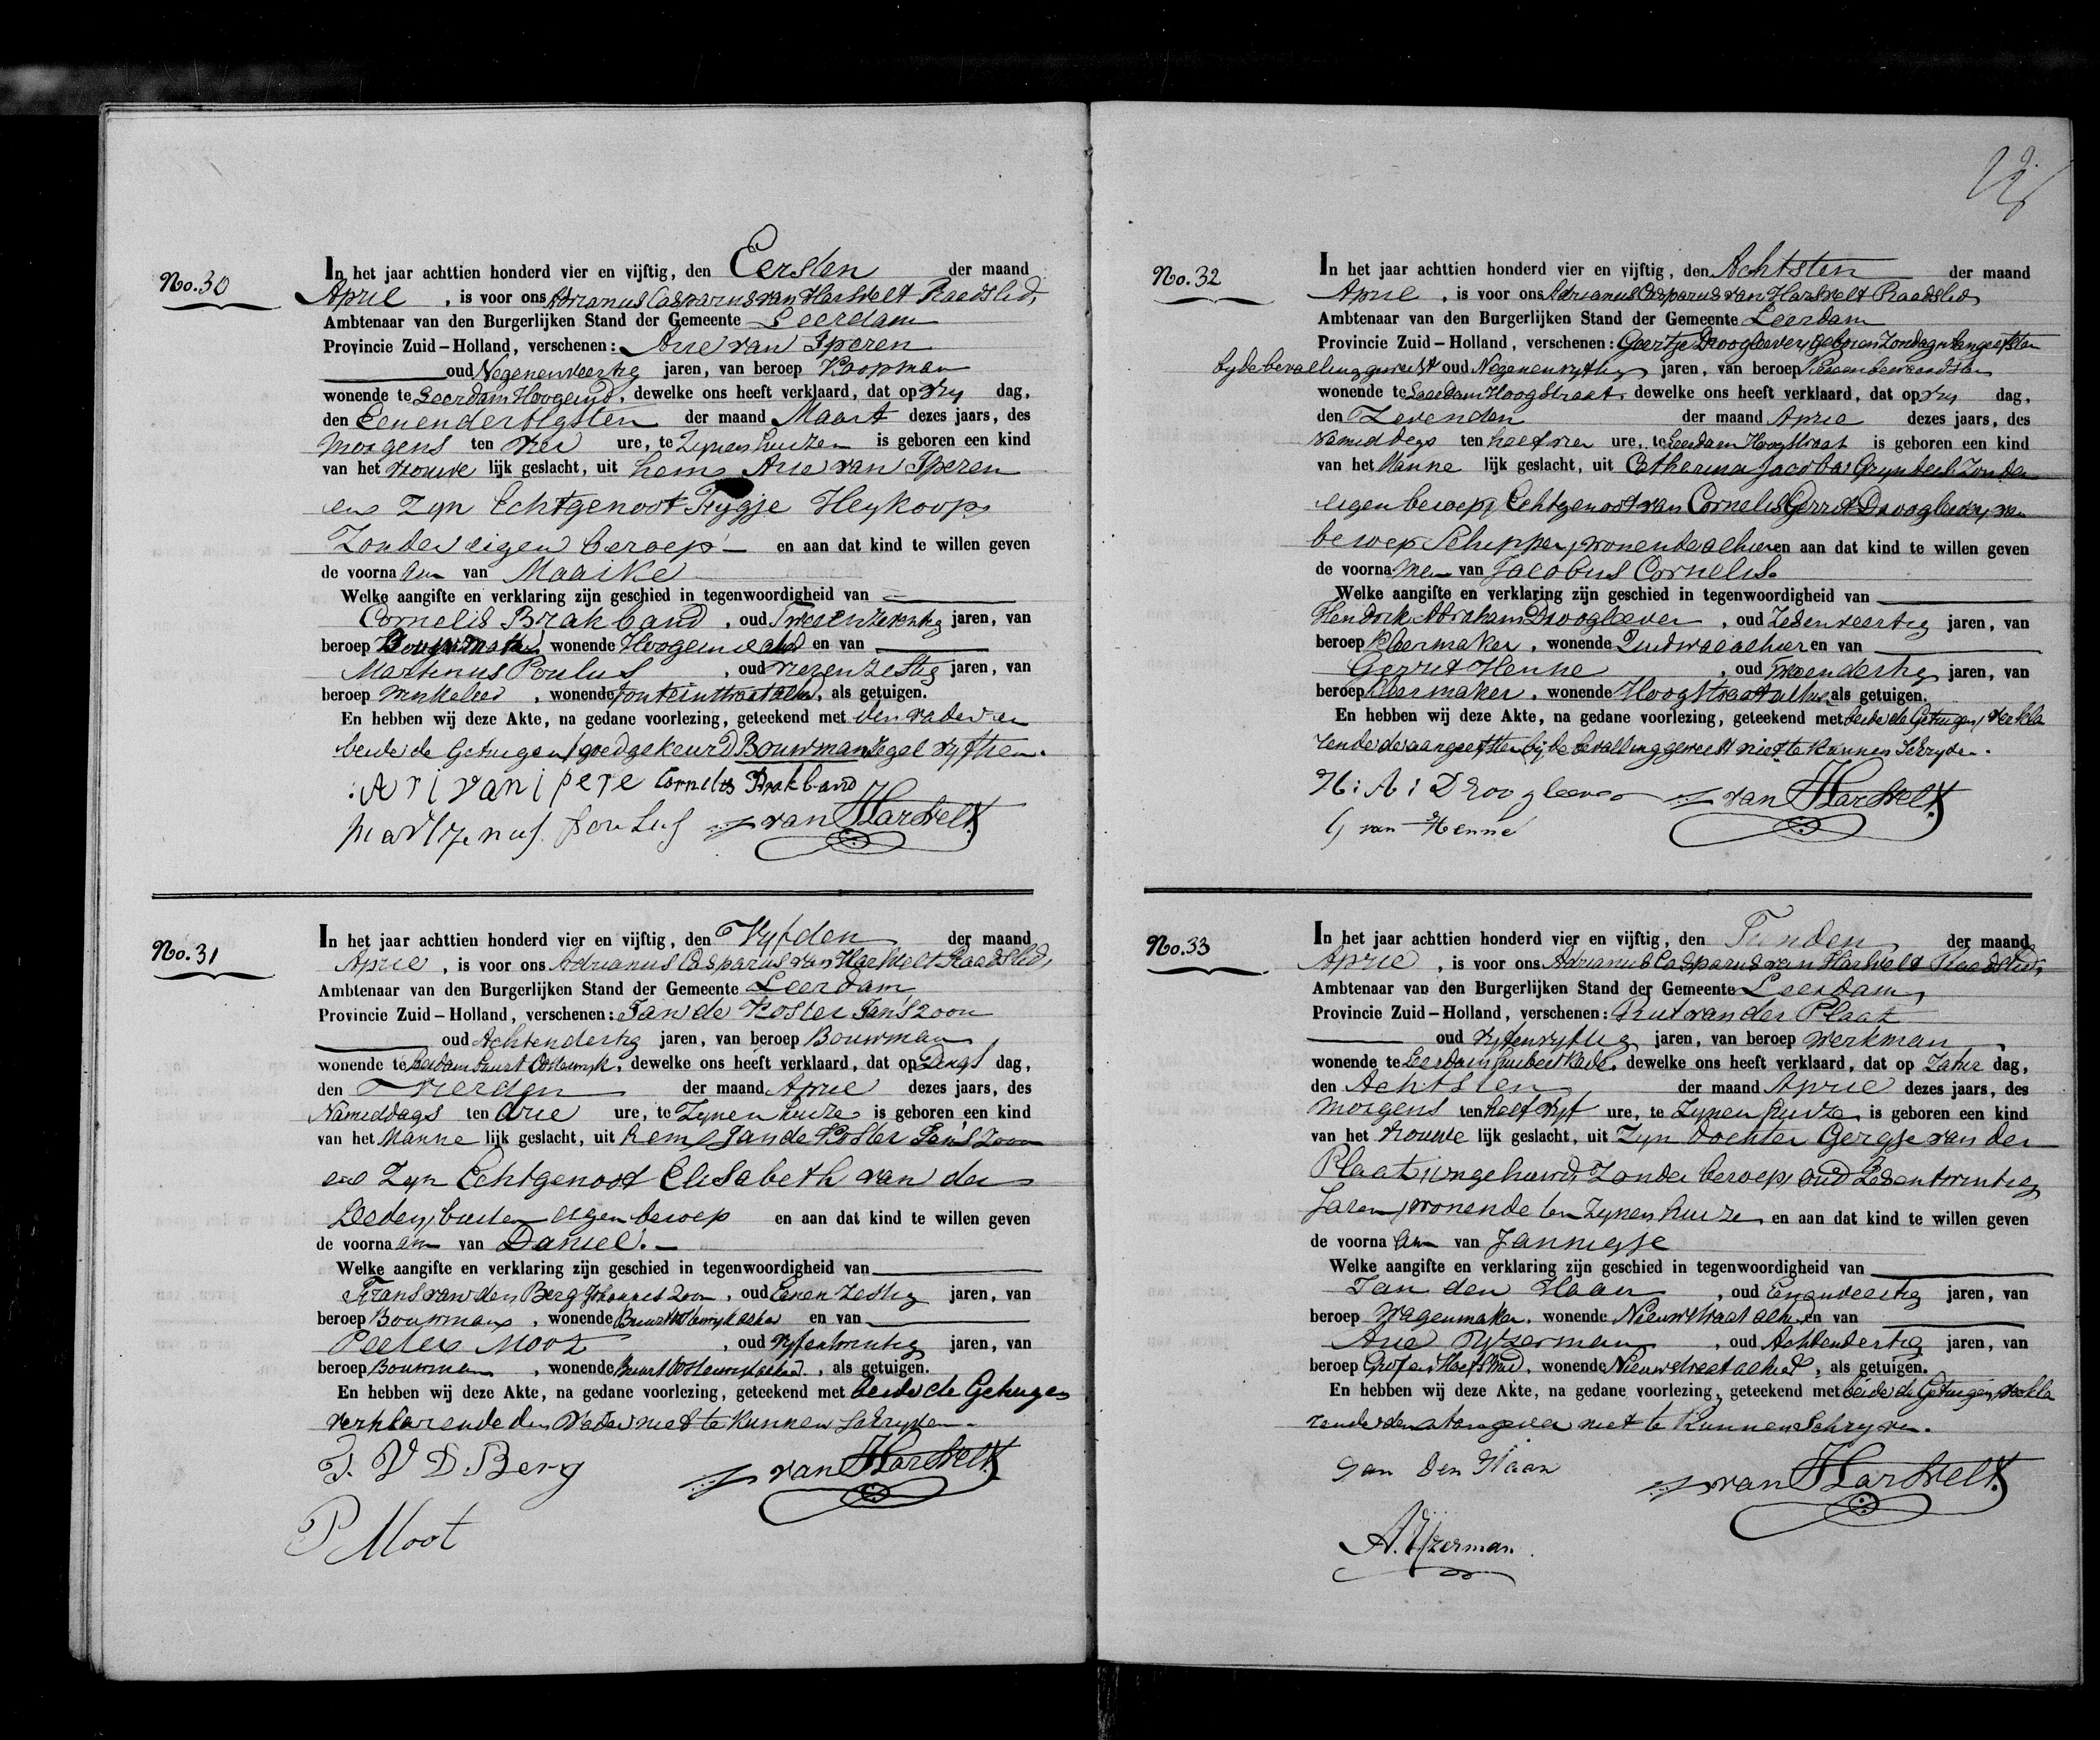 No. 30
In het jaar achttien honderd vier en vijftig, den Eersten der maand
April, is voor ons Adrianus Casparus van Harwelt Raadslid,
Ambtenaar van den Burgerlijken Stand der Gemeente Leerdam
Provincie Zuid-Holland, verschenen: Arie van Iperen
oud Negenenveertig jaren, van beroep Koopman
wonende te Leerdam Hoogeind, dewelke ons heeft verklaard, dat op Vry dag,
den Eenendertigsten der maand Maart dezes jaars, des
morgens ten vier ure, te Zynen huize is geboren een kind
van het vrouwe lijk geslacht, uit hem Arie van Iperen
en Zyn Echtgenoot Fygje Heykoop
Zonder eigen beroep en aan dat kind te willen geven
de voorna am van Maaike
Welke aangifte en verklaring zijn geschied in tegenwoordigheid van
Cornelis Brakband, oud Tweeenzeventig jaren, van
beroep wonende Hoogeind alhier en van
Martinus Poulus, oud vierenzestig jaren, van
beroep Winkelier, wonende Fonteinstraat alhier, als getuigen.
En hebben wij deze Akte, na gedane voorlezing, geteekend met den vader en
beide de Getuigen /goedgekeurd Bouwman regel vyftien.
Ari van ipere Cornelis Brakband
Martynus poulus van Harwelt
No. 31
In het jaar achttien honderd vier en vijftig, den Vyfden der maand
April, is voor ons Adrianus Casparus van Harwelt Raadslid,
Ambtenaar van den Burgerlijken Stand der Gemeente Leerdam
Provincie Zuid-Holland, verschenen: Jan de Koster Jan'szoon
oud Achtendertig jaren, van beroep Bouwman
wonende te Leerdam buurt Oosterwyk, dewelke ons heeft verklaard, dat op Dings dag,
den Vierden der maand April dezes jaars, des
Namiddags ten drie ure, te Zynen huize is geboren een kind
van het Manne lijk geslacht, uit hem Jan de Koster Jan's zoon
en Zyn Echtgenoot Elisabeth van der
Leeden, buiten eigen beroep en aan dat kind te willen geven
de voorna am van Daniel.
Welke aangifte en verklaring zijn geschied in tegenwoordigheid van
Frans van den Berg Johannes Zoon, oud Eenenzestig jaren, van
beroep Bouwman, wonende Buurt Oosterwyk alhier en van
Peeter Moot, oud vyfentwintig jaren, van
beroep Bouwman, wonende Buurt Oosterwyk alhier, als getuigen.
En hebben wij deze Akte, na gedane voorlezing, geteekend met beide de Getuigen
verklarende den Vader niet te kunnen Schryven.
F. V D. Berg van Harwelt
P Moot
No. 32
In het jaar achttien honderd vier en vijftig, den Achtsten der maand
April, is voor ons Adrianus Casparus van Harwelt Raadslid
Ambtenaar van den Burgerlijken Stand der Gemeente Leerdam
Provincie Zuid-Holland, verschenen: Geertje Droogleever, geboren Zondag, aangeefster
by de bevalling geweest oud Negenenvyftig jaren, van beroep
wonende te Leerdam Hoogstraat, dewelke ons heeft verklaard, dat op Vry dag,
den Zevenden der maand April dezes jaars, des
namiddags ten half vier ure, te Leerdam Hoogstraat is geboren een kind
van het Manne lijk geslacht, uit Catharina Jacoba Zonder
eigen beroep, Echtgenoot van Cornelis Gerrit Droogleever, van
beroep Schipper, wonende alhier en aan dat kind te willen geven
de voorna men van Jacobus Cornelis.
Welke aangifte en verklaring zijn geschied in tegenwoordigheid van
Hendrik Abraham Droogleever, oud Zesenveertig jaren, van
beroep Kleermaker, wonende Zuidwal alhier en van
Gerrit Henne, oud jaren, van
beroep Kleermaker, wonende Hoogstraat alhier als getuigen.
En hebben wij deze Akte, na gedane voorlezing, geteekend met beide de Getuigen, verkla
rende de aangeefster by de bevalling geweest niet te kunnen Schryven.
H: A: Droogleever van Harwelt
G van Henne
No. 33
In het jaar achttien honderd vier en vijftig, den Tienden der maand
April, is voor ons Adrianus Casparus van Harwelt Raadslid,
Ambtenaar van den Burgerlijken Stand der Gemeente Leerdam,
Provincie Zuid-Holland, verschenen: Rut van der Plaat
oud vyfenvyftig jaren, van beroep Werkman,
wonende te Leerdam, dewelke ons heeft verklaard, dat op Zatur dag,
den Achtsten der maand April dezes jaars, des
morgens ten half vyf ure, te Zynen huize is geboren een kind
van het Vrouwe lijk geslacht, uit Zyn dochter Gergje van der
Plaat, ongehuwd, Zonder beroep, oud Zesentwintig
Jaren, wonende ten Zynen huize en aan dat kind te willen geven
de voorna am van Jannigje
Welke aangifte en verklaring zijn geschied in tegenwoordigheid van
Jan den Haan, oud Eenenveertig jaren, van
beroep Wagenmaker, wonende Nieuwstraat alhier en van
Arie Yzerman, oud Achtendertig jaren, van
beroep Grofen Hoefsmid, wonende Nieuwstraat alhier, als getuigen.
En hebben wij deze Akte, na gedane voorlezing, geteekend met beide de Getuigen, verkla
rende den Aangever niet te kunnen Schryven.
Jan Den Haan van Harwelt
A. IJzerman.